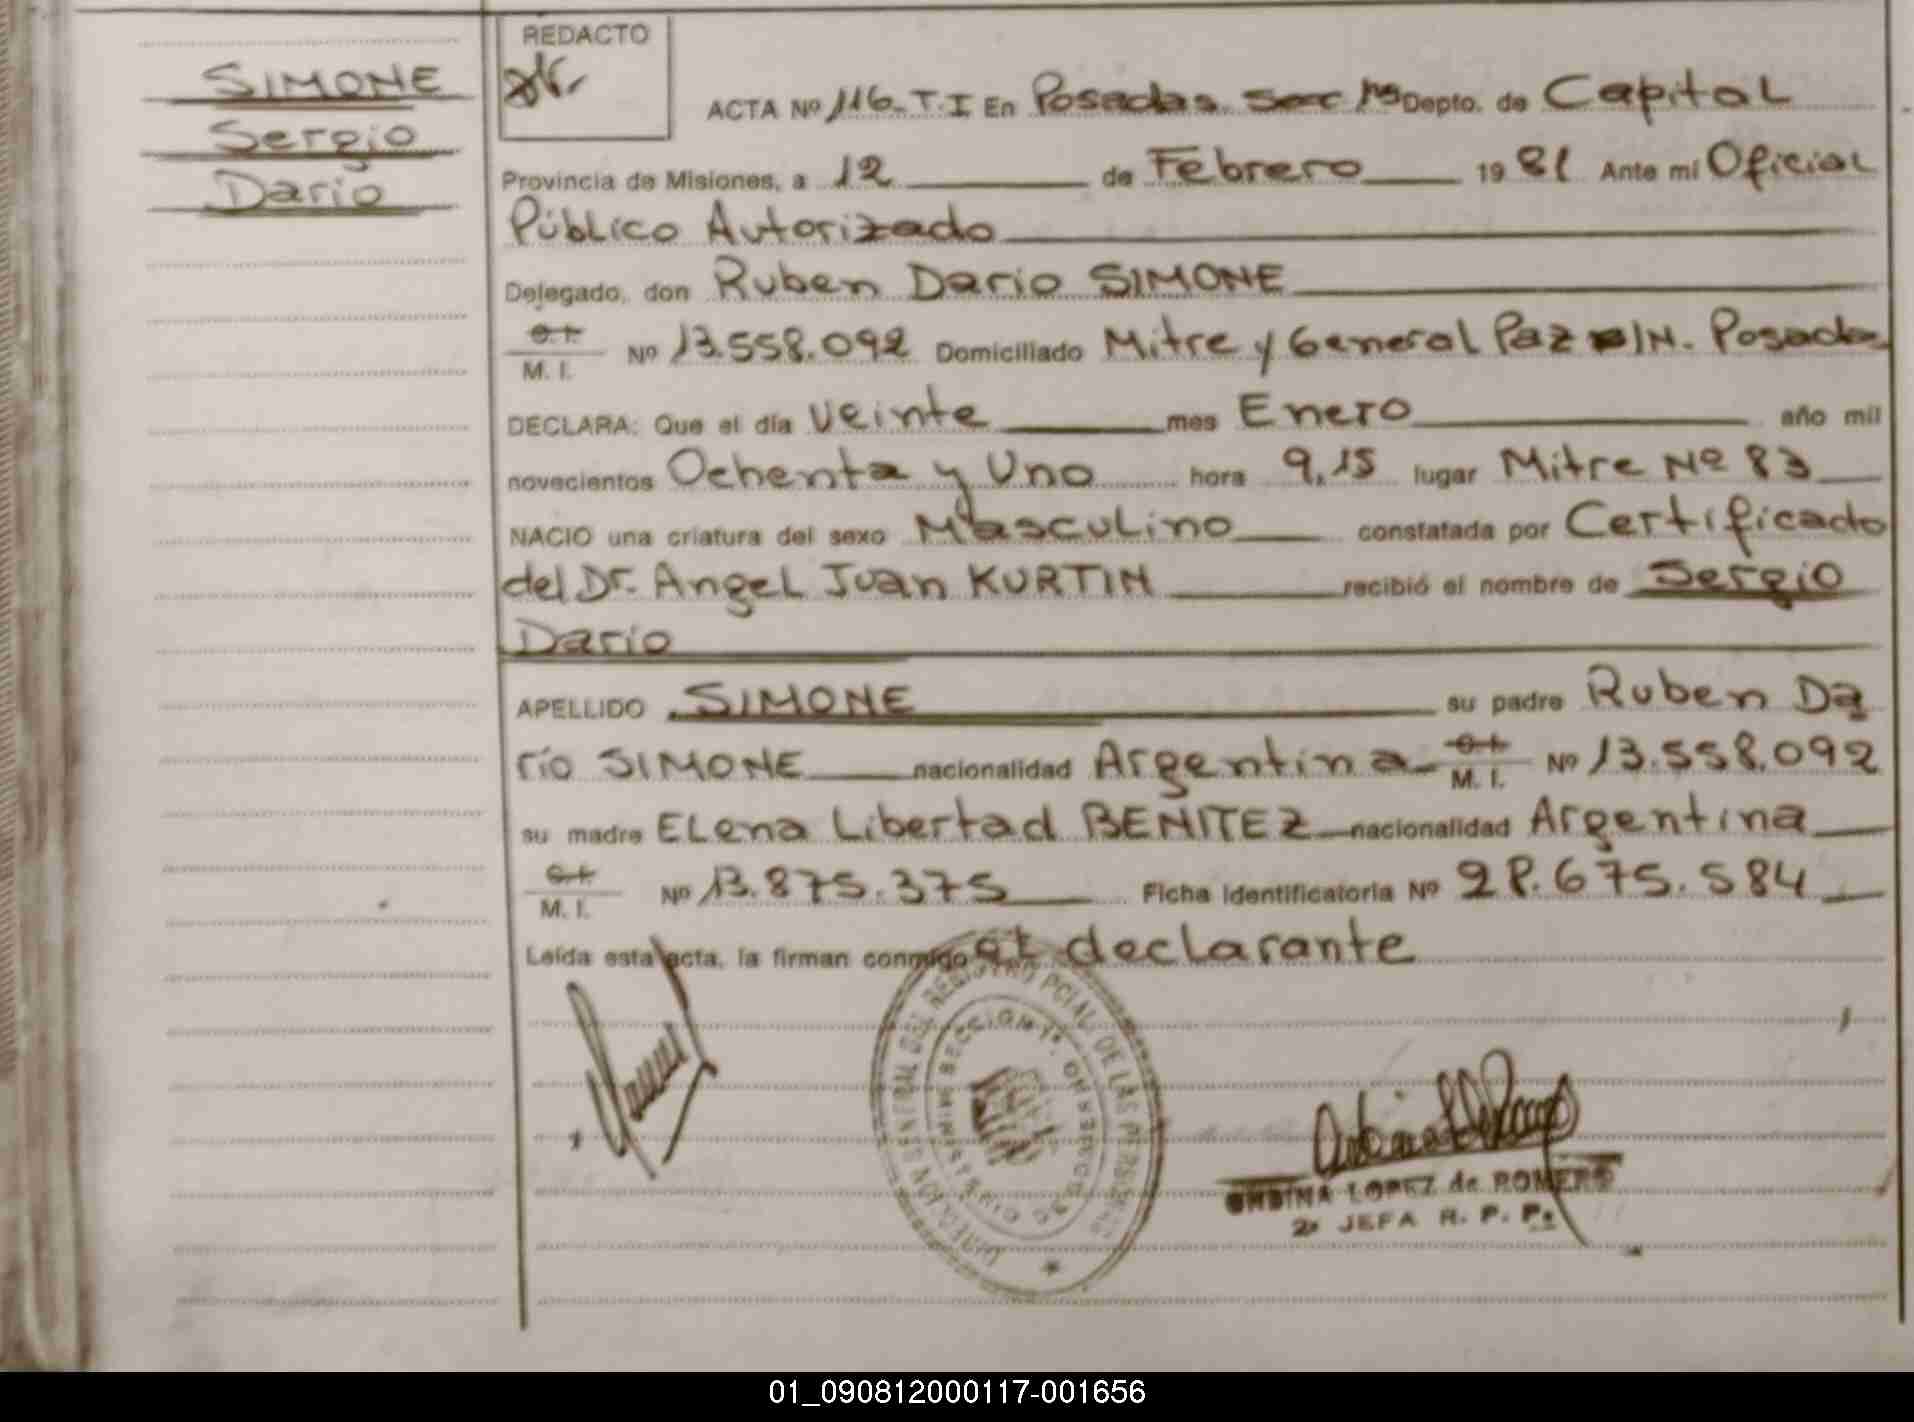 SIMONE
Sergio
Dario
REDACTO
ACTA Nº 116. T. I En Posadas Sec 1ra Depto. de Capital
Provincia de Misiones, a 12 de Febrero 1981 Ante mí Oficial
Público Autorizado
Delegado, don Ruben Dario SIMONE
C.I.
M. I. Nº 13.558.092 Domiciliado Mitre y General Paz S/N. Posadas
DECLARA: Que el día Veinte mes Enero año mil
novecientos Ochenta y Uno hora 9,15 lugar Mitre Nº 83
NACIO una criatura del sexo Masculino constatada por Certificado
del Dr. Angel Juan KURTIN recibió el nombre de Sergio
Darío
APELLIDO SIMONE su padre Ruben Da
río SIMONE nacionalidad Argentina C.I. M. I. Nº 13.558.092
su madre Elena Libertad BENITEZ nacionalidad Argentina
C.I.
M. I. Nº 13.875.375 Ficha Identificatoria Nº 28.675.584
Leída esta acta, la firman conmigo el declarante
DIRECCION GENERAL DEL REGISTRO PCIAL. DE LAS PERSONAS
SECCION 1ª
ONDINA LOPEZ de ROMERO
2ª JEFA R. P. P.
01_090812000117-001656